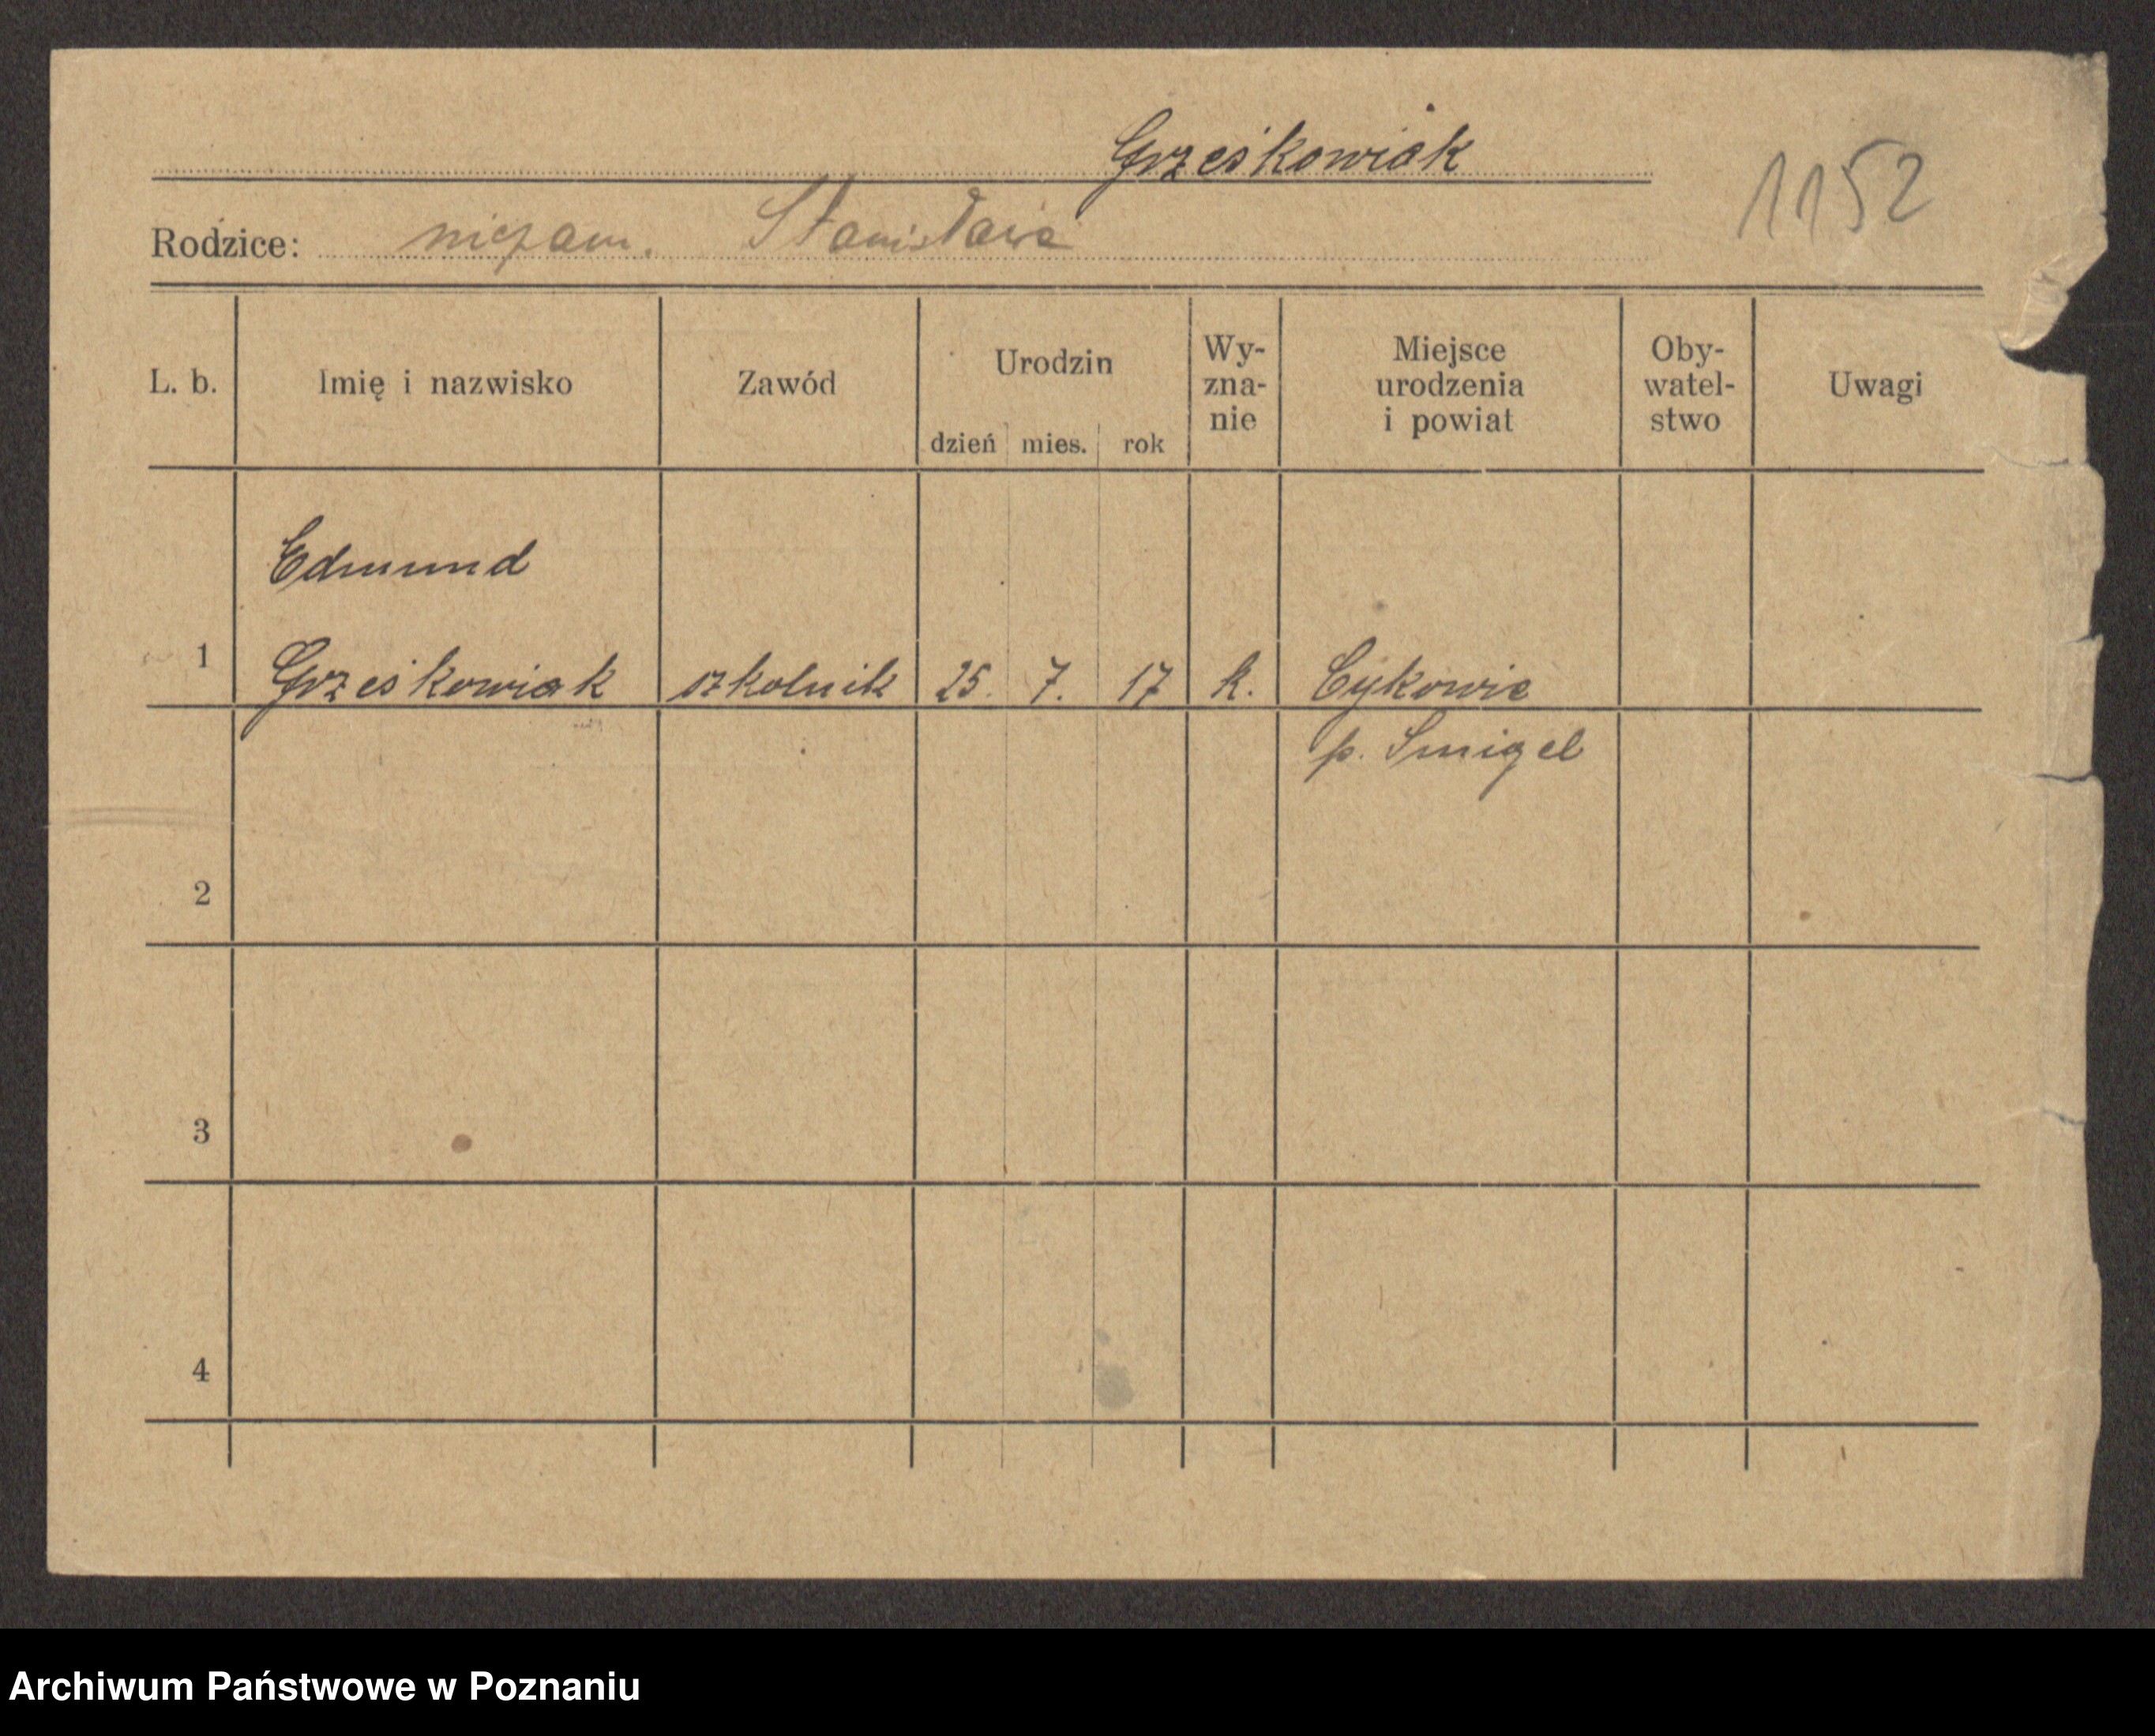 Grześkowiak
1152
Rodzice: niezam. Stanisława
L. b. Imię i nazwisko Zawód Urodzin dzień mies. rok Wy-zna-nie Miejsce urodzenia i powiat Oby-watel-stwo Uwagi
Edmund
1 Grześkowiak szkolnik 25. 7. 17 k. Cykowie
p. Smigel
2
3
4
Archiwum Państwowe w Poznaniu